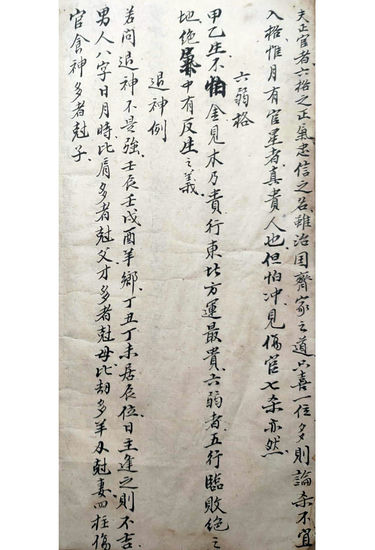 夫正官者六格之正氣忠信之名雖治国齊家之道只喜一位多則論杀不宜
入格惟月有官星者真貴人也但怕冲見傷官七杀亦然
六弱格
甲乙生不怕金見木乃貴行東北方運最貴六弱者五行臨敗绝之
地绝氣中有反生之義
退神例
若问退神不是強壬辰壬戌酉羊鄉丁丑丁未居辰位日主逢之則不吉
男人八字日月時比肩多者尅父才多者尅母比刼多羊刃尅妻四柱傷
官食神多者尅子